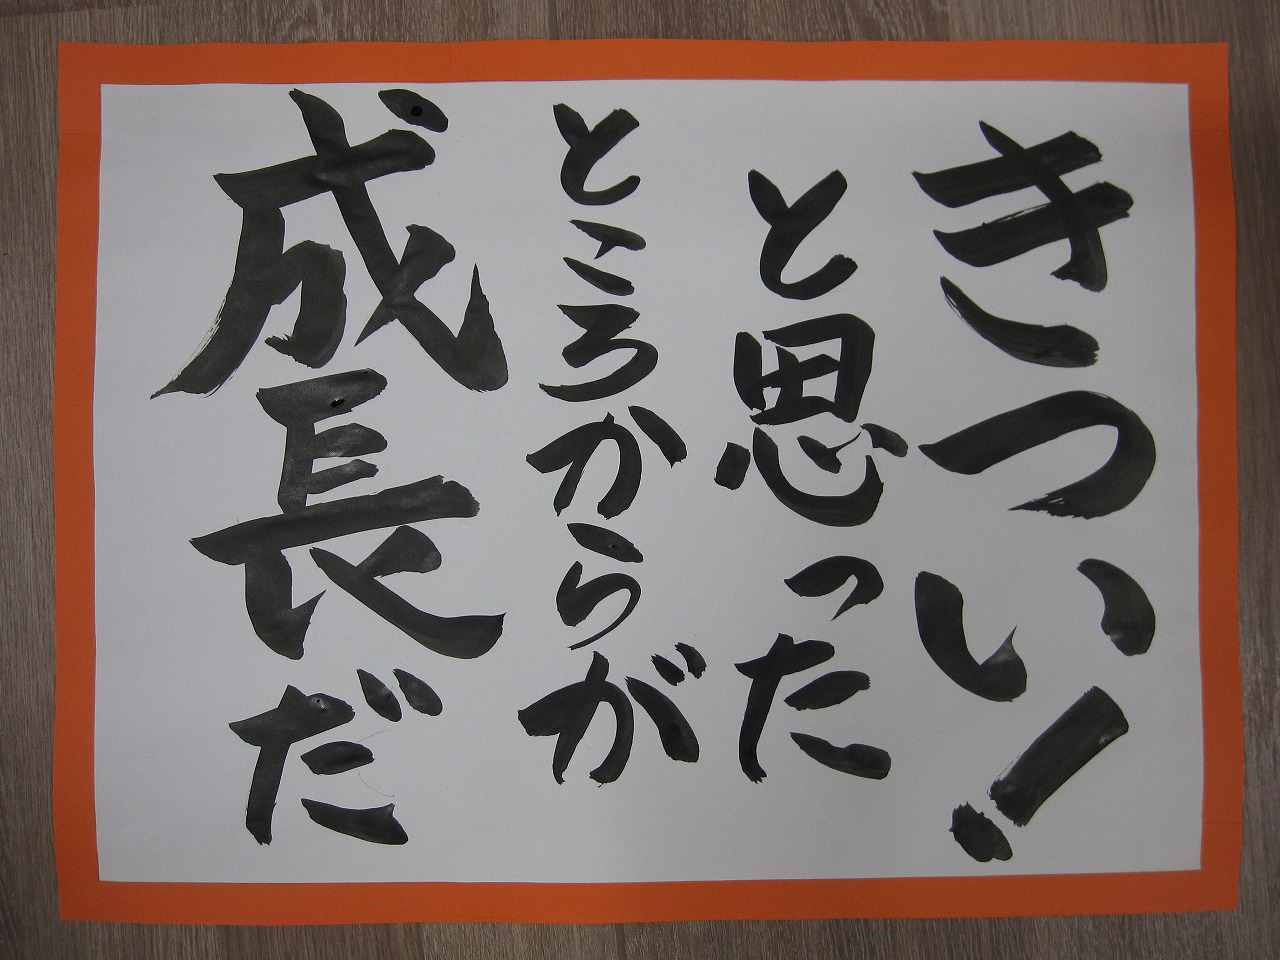 きつい!
と思った
ところからが
成長だ